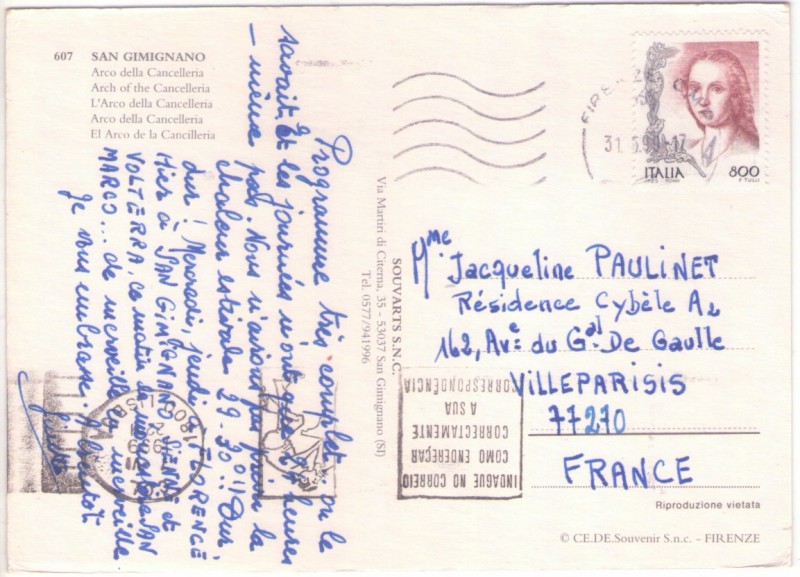 607 SAN GIMIGNANO
Arco della Cancelleria
Arch of the Cancelleria
L'Arco della Cancelleria
Arco della Cancelleria
El Arco de la Cancilleria
Programme très complet, on le
savait. Et les journées n'ont que 24 heures
– même pas. Nous n'avions pas prévu la
chaleur estivale 29-30°!! Dur,
dur! Mercredi, jeudi FLORENCE
Hier à SAN GIMIGNANO SIENNE et
VOLTERRA, ce matin le
MARCO... de merveille en merveille.
Je vous embrasse. A bientôt.
SOUVARTS S.N.C.
Via Martiri di Citerna, 35 – 53037 San Gimignano (SI)
Tel. 0577/941996
FIRENZE
31.5.99-17
ITALIA 800
F. TULLI
Mme Jacqueline PAULINET
Résidence Cybèle A2
162, Ave du Gal De Gaulle
VILLEPARISIS
77270
FRANCE
INDAGUE NO CORREIO
COMO ENDEREÇAR
CORRECTAMENTE
A SUA
CORRESPONDÊNCIA
Riproduzione vietata
© CE.DE.Souvenir S.n.c. – FIRENZE